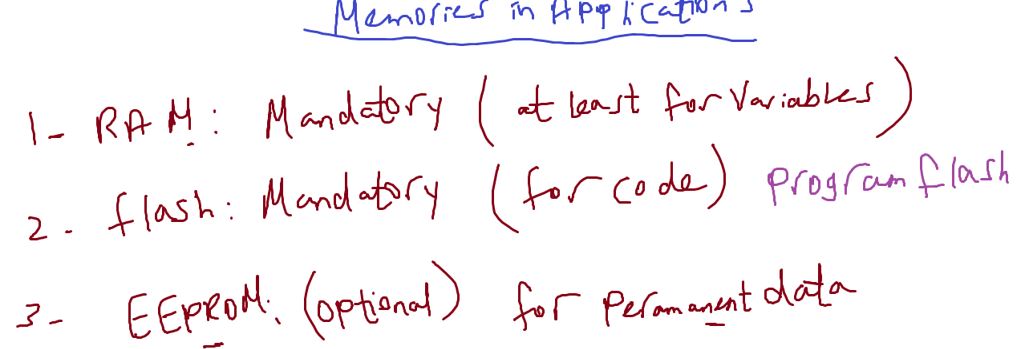 Memories in Applications
1- RAM: Mandatory (at least for Variables)
2- flash: Mandatory (for code) Program flash
3- EEPROM: (optional) for Peramanent data